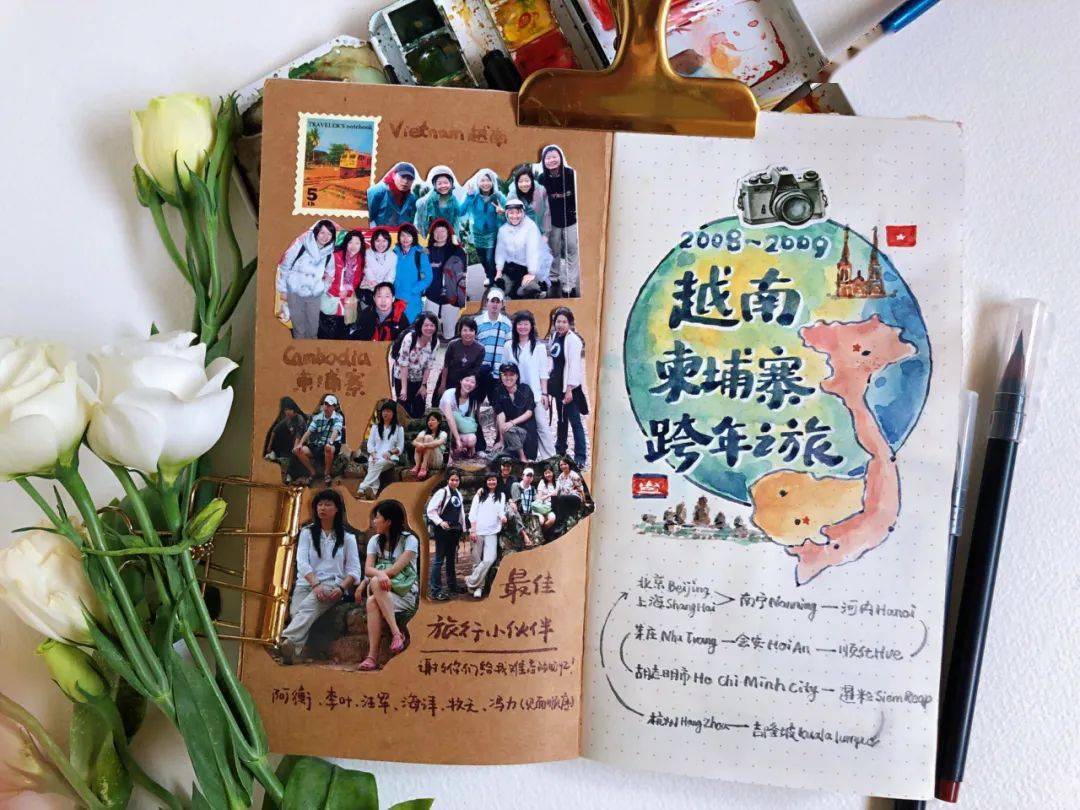 TRAVELER'S notebook
5
Vietnam 越南
Cambodia
柬埔寨
最佳
旅行小伙伴
谢谢你们给我难忘的回忆!
阿衡、李叶、汪军、海洋、牧云、冯力(见面顺序)
2008-2009
越南
柬埔寨
跨年之旅
北京 Beijing
上海 ShangHai
南宁 Nanning — 河内 Hanoi
芽庄 Nha Trang — 会安 Hoi An — 顺化 Hue
胡志明市 Ho Chi Minh City — 暹粒 Siem Reap
杭州 Hang Zhou — 吉隆坡 Kuala lumpur